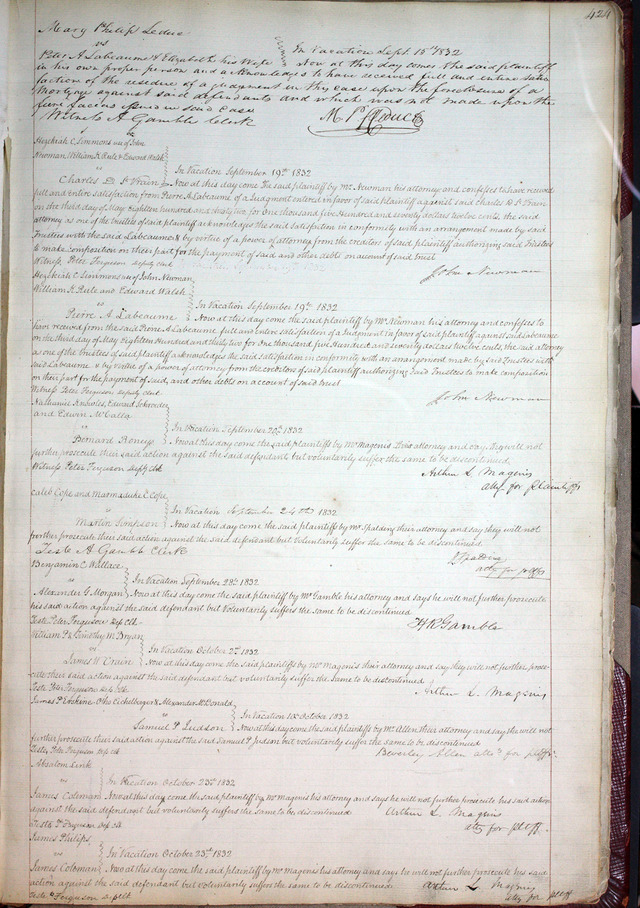 424
Mary Philip Leduc
vs
In Vacation Sept. 15th 1832
Peter A Labeaume & Elizabeth his Wife
Now at this day comes the said plaintiff
in his own proper person and acknowledges to have received full and entire satis
faction of the residue of a judgment in this case upon the foreclosure of a
mortgage against said defendants and which was not made upon the
fieri facias issued in said case
Witness A Gamble Clerk
M P Leduc
Hezekiah C. Simmons use of John
Newman, William K. Rule & Edward Walsh
In Vacation September 19th 1832
Charles D St Vrain
Now at this day come the said plaintiff by Mr. Newman his attorney and confesses to have received
full and entire satisfaction from Pierre A. Labeaume of a Judgment entered in favor of said plaintiff against said Charles D. St Vrain
on the third day of May Eighteen hundred and thirty two, for One thousand five Hundred and seventy dollars twelve cents, the said
attorney as one of the trustees of said plaintiff acknowledges the said satisfaction in conformity with an arrangement made by said
Trustees with the said Labeaume & by virtue of a power of attorney from the creditors of said plaintiff authorizing said Trustees
to make composition on their part for the payment of said and other debt on account of said trust
Witness, Peter Ferguson deputy clerk
John Newman
Hezekiah C. Simmons use of John Newman,
William K. Rule and Edward Walsh
In Vacation September 19th 1832
Pierre A. Labeaume
Now at this day come the said plaintiff by Mr. Newman his attorney and confesses to
have received from the said Pierre A. Labeaume full and entire satisfaction of a Judgment in favor of said plaintiff against said Labeaume
on the third day of May Eighteen Hundred and thirty two for One thousand, five Hundred and seventy dollars twelve cents, the said attorney
as one of the trustees of said plaintiff acknowledges the said satisfaction in conformity with an arrangement made by said Trustees with
said Labeaume, & by virtue of a power of attorney from the creditors of said plaintiff authorizing said Trustees to make composition
on their part for the payment of said, and other debts on account of said trust
Witness Peter Ferguson deputy clerk
John Newman
Nathaniel Knowles, Edward Schroeder
and Edwin
In Vacation September 20th 1832
Bernard
Now at this day come the said plaintiffs by Mr. Magenis their attorney and say they will not
further prosecute their said action against the said defendant but voluntarily suffer the same to be discontinued
Witness Peter Ferguson Depy clk
Arthur L. Magenis
atty for plaintiffs
Caleb Cope and Marmaduke C. Cope
In Vacation September 24th 1832
Martin Simpson
Now at this day come the said plaintiffs by Mr. Spalding their attorney and say they will not
further prosecute their said action against the said defendant but Voluntarily suffer the same to be discontinued
Teste A Gamble Clerk
Spalding
atty for pltffs
Benjamin C. Wallace
In Vacation September 28th 1832
Alexander G. Morgan
Now at this day come the said plaintiff by Mr Gamble his attorney and says he will not further prosecute
his said action against the said defendant but Voluntarily suffers the same to be discontinued
Teste Peter Ferguson Dep Clk
H R Gamble
William P & Timothy M. Bryan
In Vacation October 2d 1832
James W Crain
Now at this day come the said plaintiffs by Mr magenis their attorney and say they will not further prose-
cute their said action against the said defendant but voluntarily suffer the same to be discontinued
Teste Peter Ferguson Dep clk
Arthur L. Magenis
James P. Erskine, Otho Eichelberger & Alexander McDonald
In Vacation 10th October 1832
Samuel P Judson
Now at this day come the said plaintiffs by Mr Allen their attorney and say they will not
further prosecute their said action against the said Samuel P Judson but voluntarily suffer the same to be discontinued
Teste, Peter Ferguson Dep clk
Beverley Allen atto for pltffs
Absalom Link
In Vacation October 23d 1832
James Coleman
Now at this day come the said plaintiff by Mr magenis his attorney and says he will not further prosecute his said action
against the said defendant but voluntarily suffers the same to be discontinued
Teste P Ferguson Dep clk
Arthur L. Magenis
atty for pltff
James Philips
In Vacation October 23d 1832
James Coleman
Now at this day come the said plaintiff by Mr magenis his attorney and says he will not further prosecute his said
action against the said defendant but Voluntarily suffers the same to be discontinued
Teste P Ferguson Dep clk
Arthur L. Magenis
atty for pltff